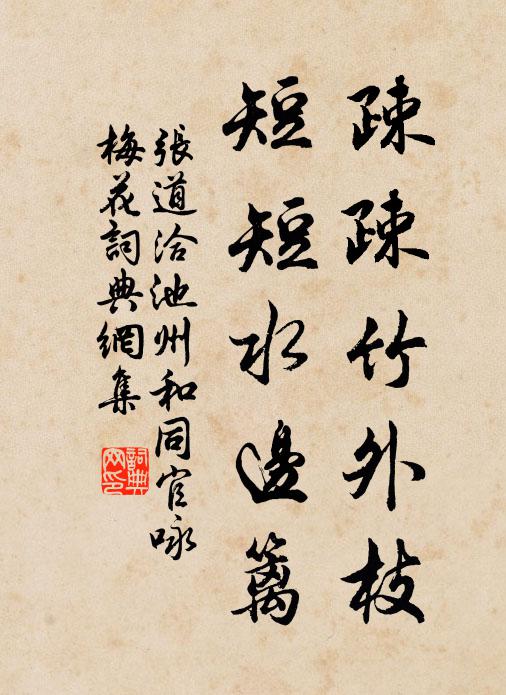 疎疎竹外枝
短短水邊籬
張道洽池州和同官咏
梅花詞典網集
詞典网印